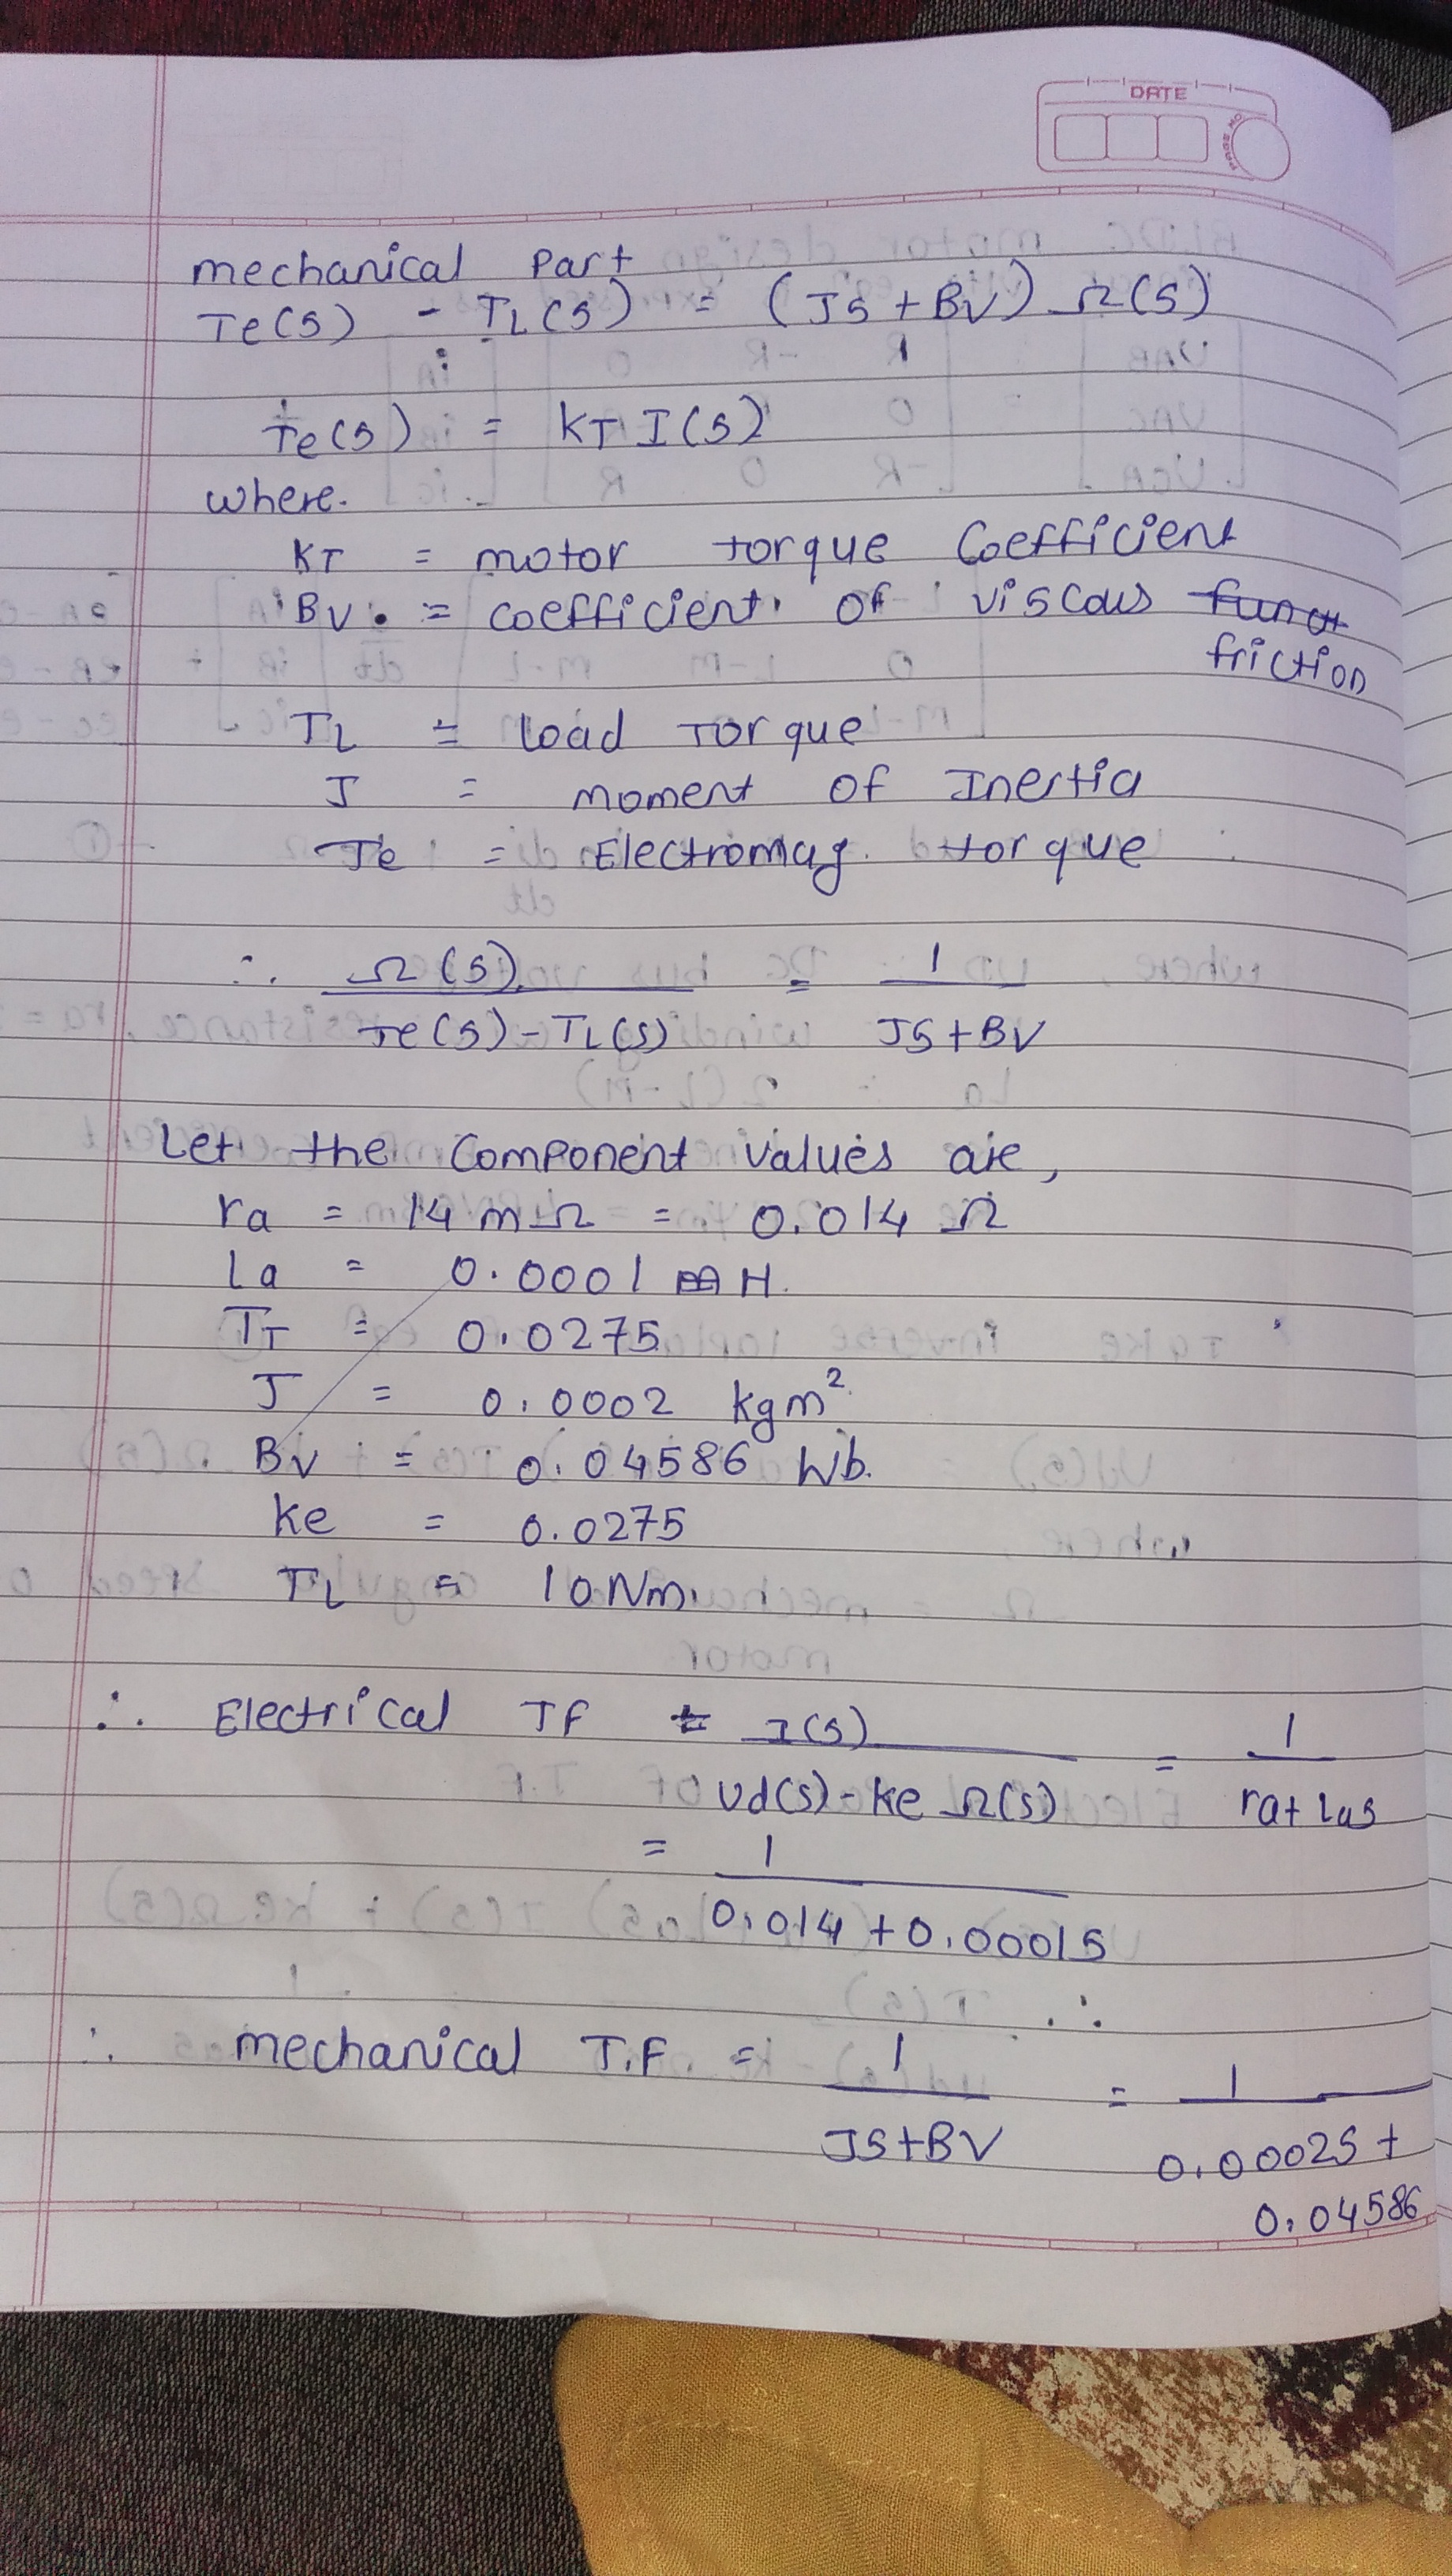 DATE
PAGE NO
mechanical Part
Te(s) - TL(s) = (Js + Bv) Ω(s)
Te(s) = KT I(s)
where.
KT = motor torque Coefficient
Bv. = coefficient of viscous
friction
TL = load Torque
J = moment of Inertia
Te = Electromag. torque
∴ Ω(s) = 1
Te(s) - TL(s) Js + Bv
Let the Component values are,
ra = 14 mΩ = 0.014 Ω
La = 0.0001 H.
TT = 0.0275
J = 0.0002 kgm²
Bv = 0.04586 Wb.
ke = 0.0275
TL = 10Nm.
∴ Electrical TF = I(s) = 1
Vd(s) - ke Ω(s) ra + Las
= 1
0.014 + 0.0001s
∴
∴ mechanical T.F = 1 = 1
Js + Bv 0.0002s +
0.04586